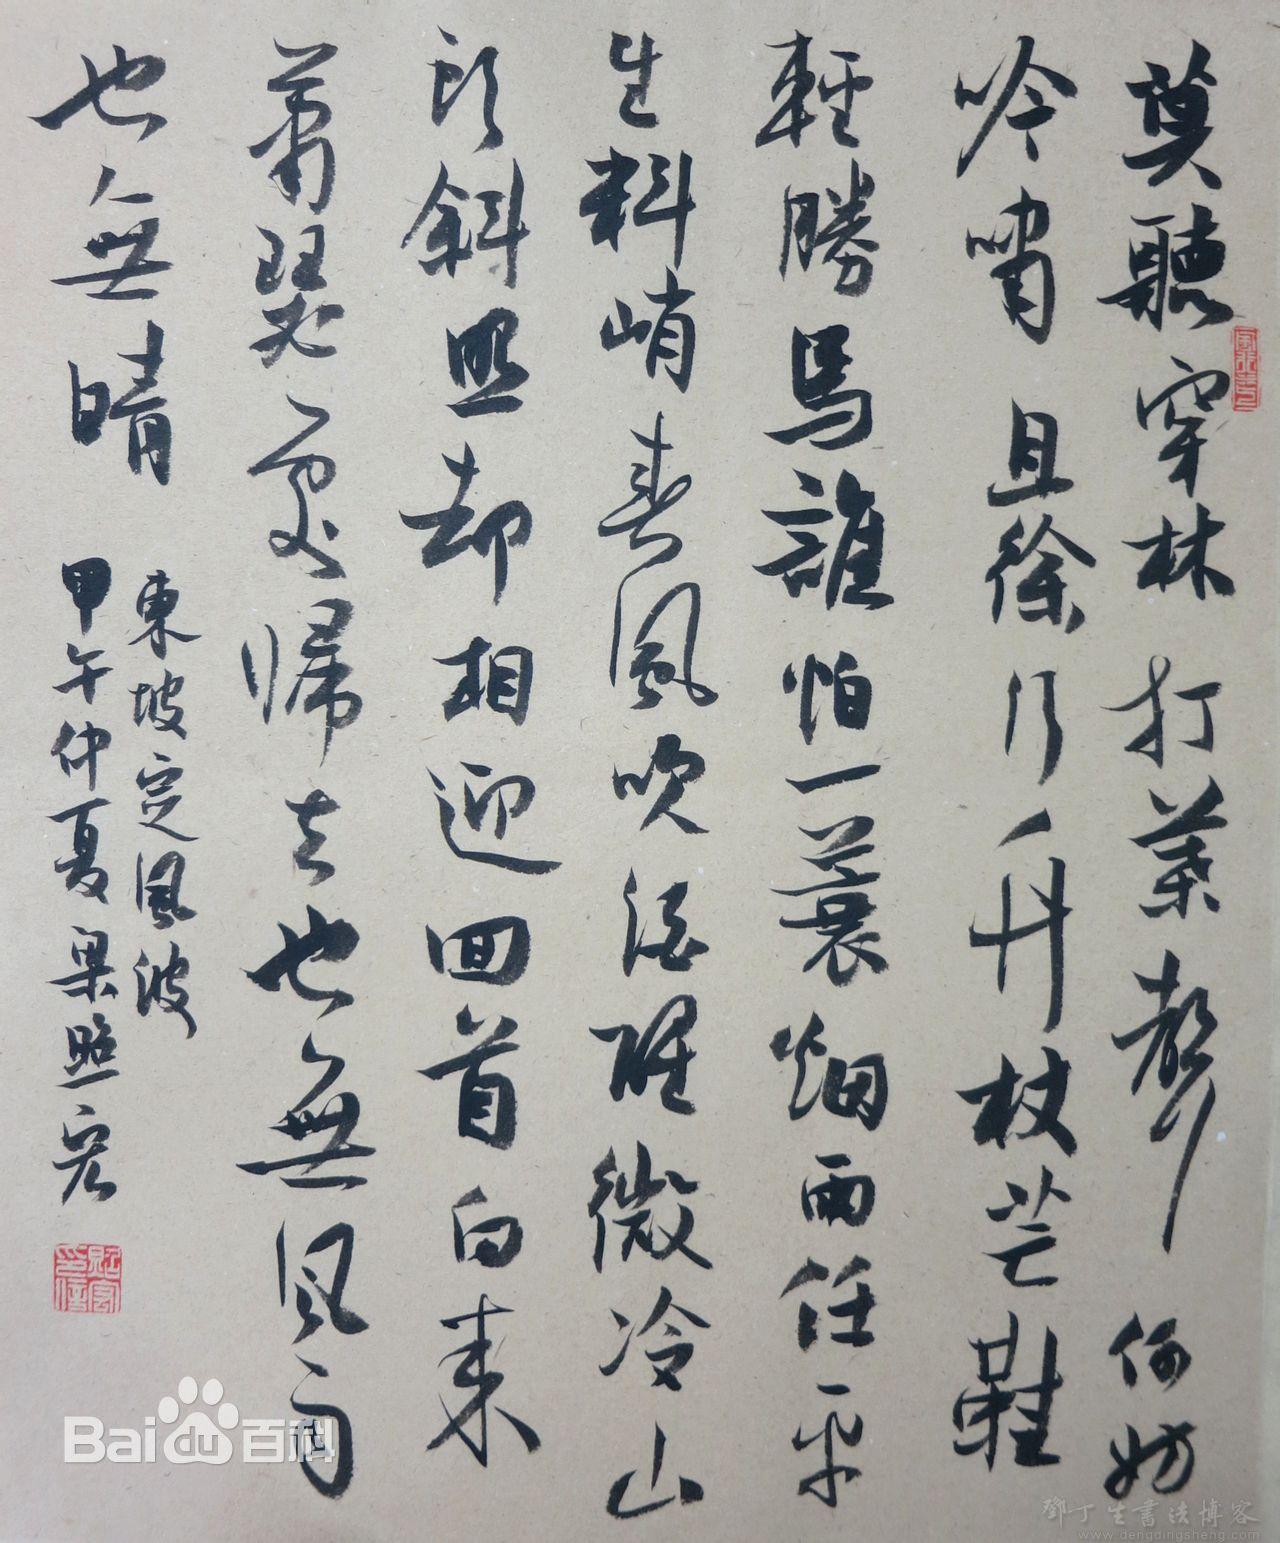 莫聽穿林打葉聲何妨
吟嘯且徐行竹杖芒鞋
輕勝馬誰怕一蓑烟雨任平
生料峭春風吹酒醒微冷山
頭斜照却相迎回首向來
蕭瑟處歸去也無風雨
也無晴
東坡定風波
甲午仲夏梁照宏
Bai百科
鄧丁生書法博客
www.dengdingsheng.com